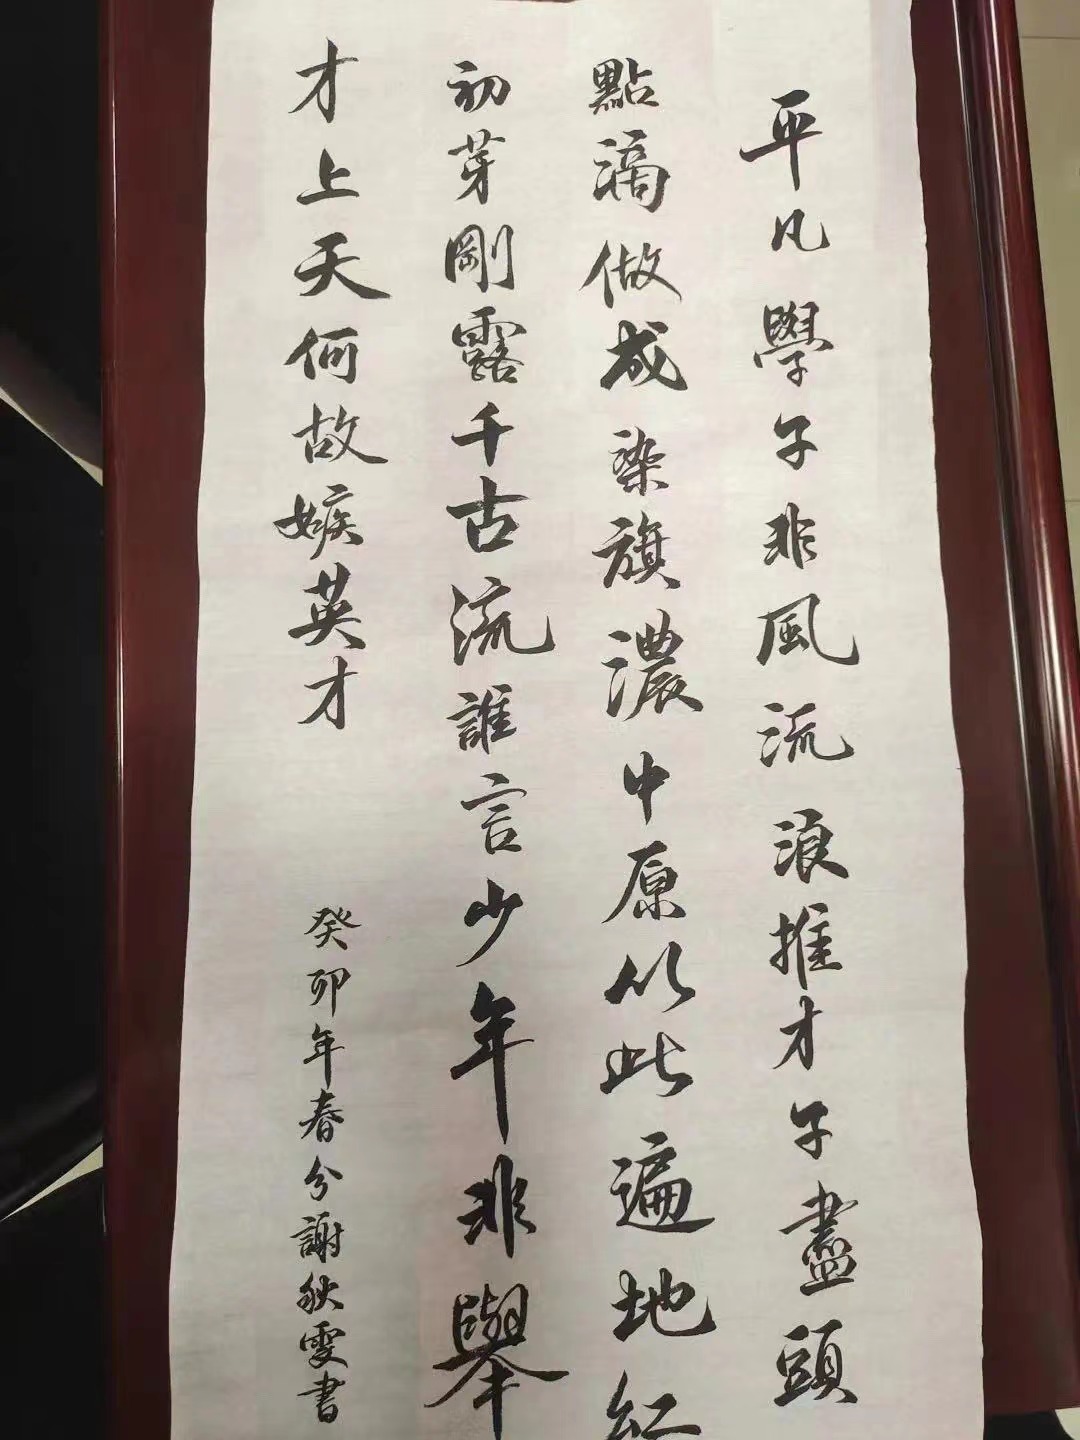 平凡學子非風流浪推才子盡頭
點滴做成染旗濃中原以此遍地紅
初芽剛露千古流誰言少年非舉
才上天何故嫉英才
癸卯年春分謝秋雯書